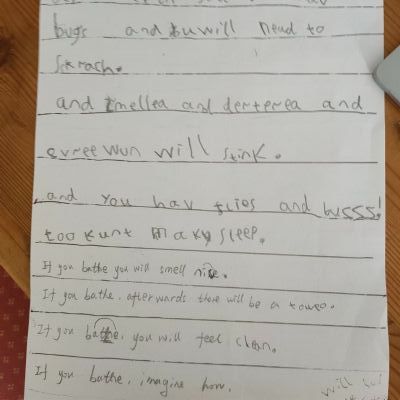 bugs and tu will nead to
skrach.
and smellea and derterea and
evree wun will stink.
and you hav flies and busss!
too kunt mak sleep.
If you bathe you will smell nice.
If you bathe, afterwards there will be a towel.
If you bathe, you will feel clean.
If you bathe, imagine how.
will